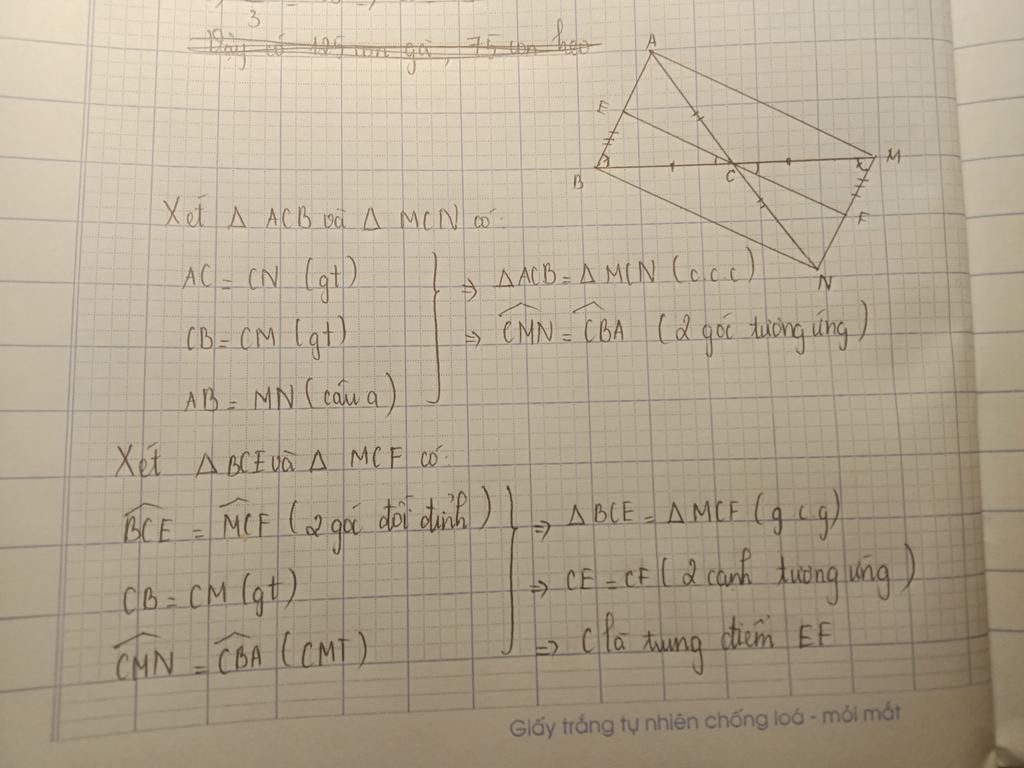 3
Vậy có 105 con gà, 75 con heo
A
E
B
C
M
F
N
Xét Δ ACB và Δ MCN có:
AC = CN (gt)
CB = CM (gt)
AB = MN (câu a)
=> Δ ACB = Δ MCN (c c c)
=> CMN = CBA (2 góc tương ứng)
Xét Δ BCE và Δ MCF có:
BCE = MCF (2 góc đối đỉnh)
CB = CM (gt)
CMN = CBA (CMT)
=> Δ BCE = Δ MCF (g c g)
=> CE = CF (2 cạnh tương ứng)
=> C là trung điểm EF
Giấy trắng tự nhiên chống loá - mỏi mắt